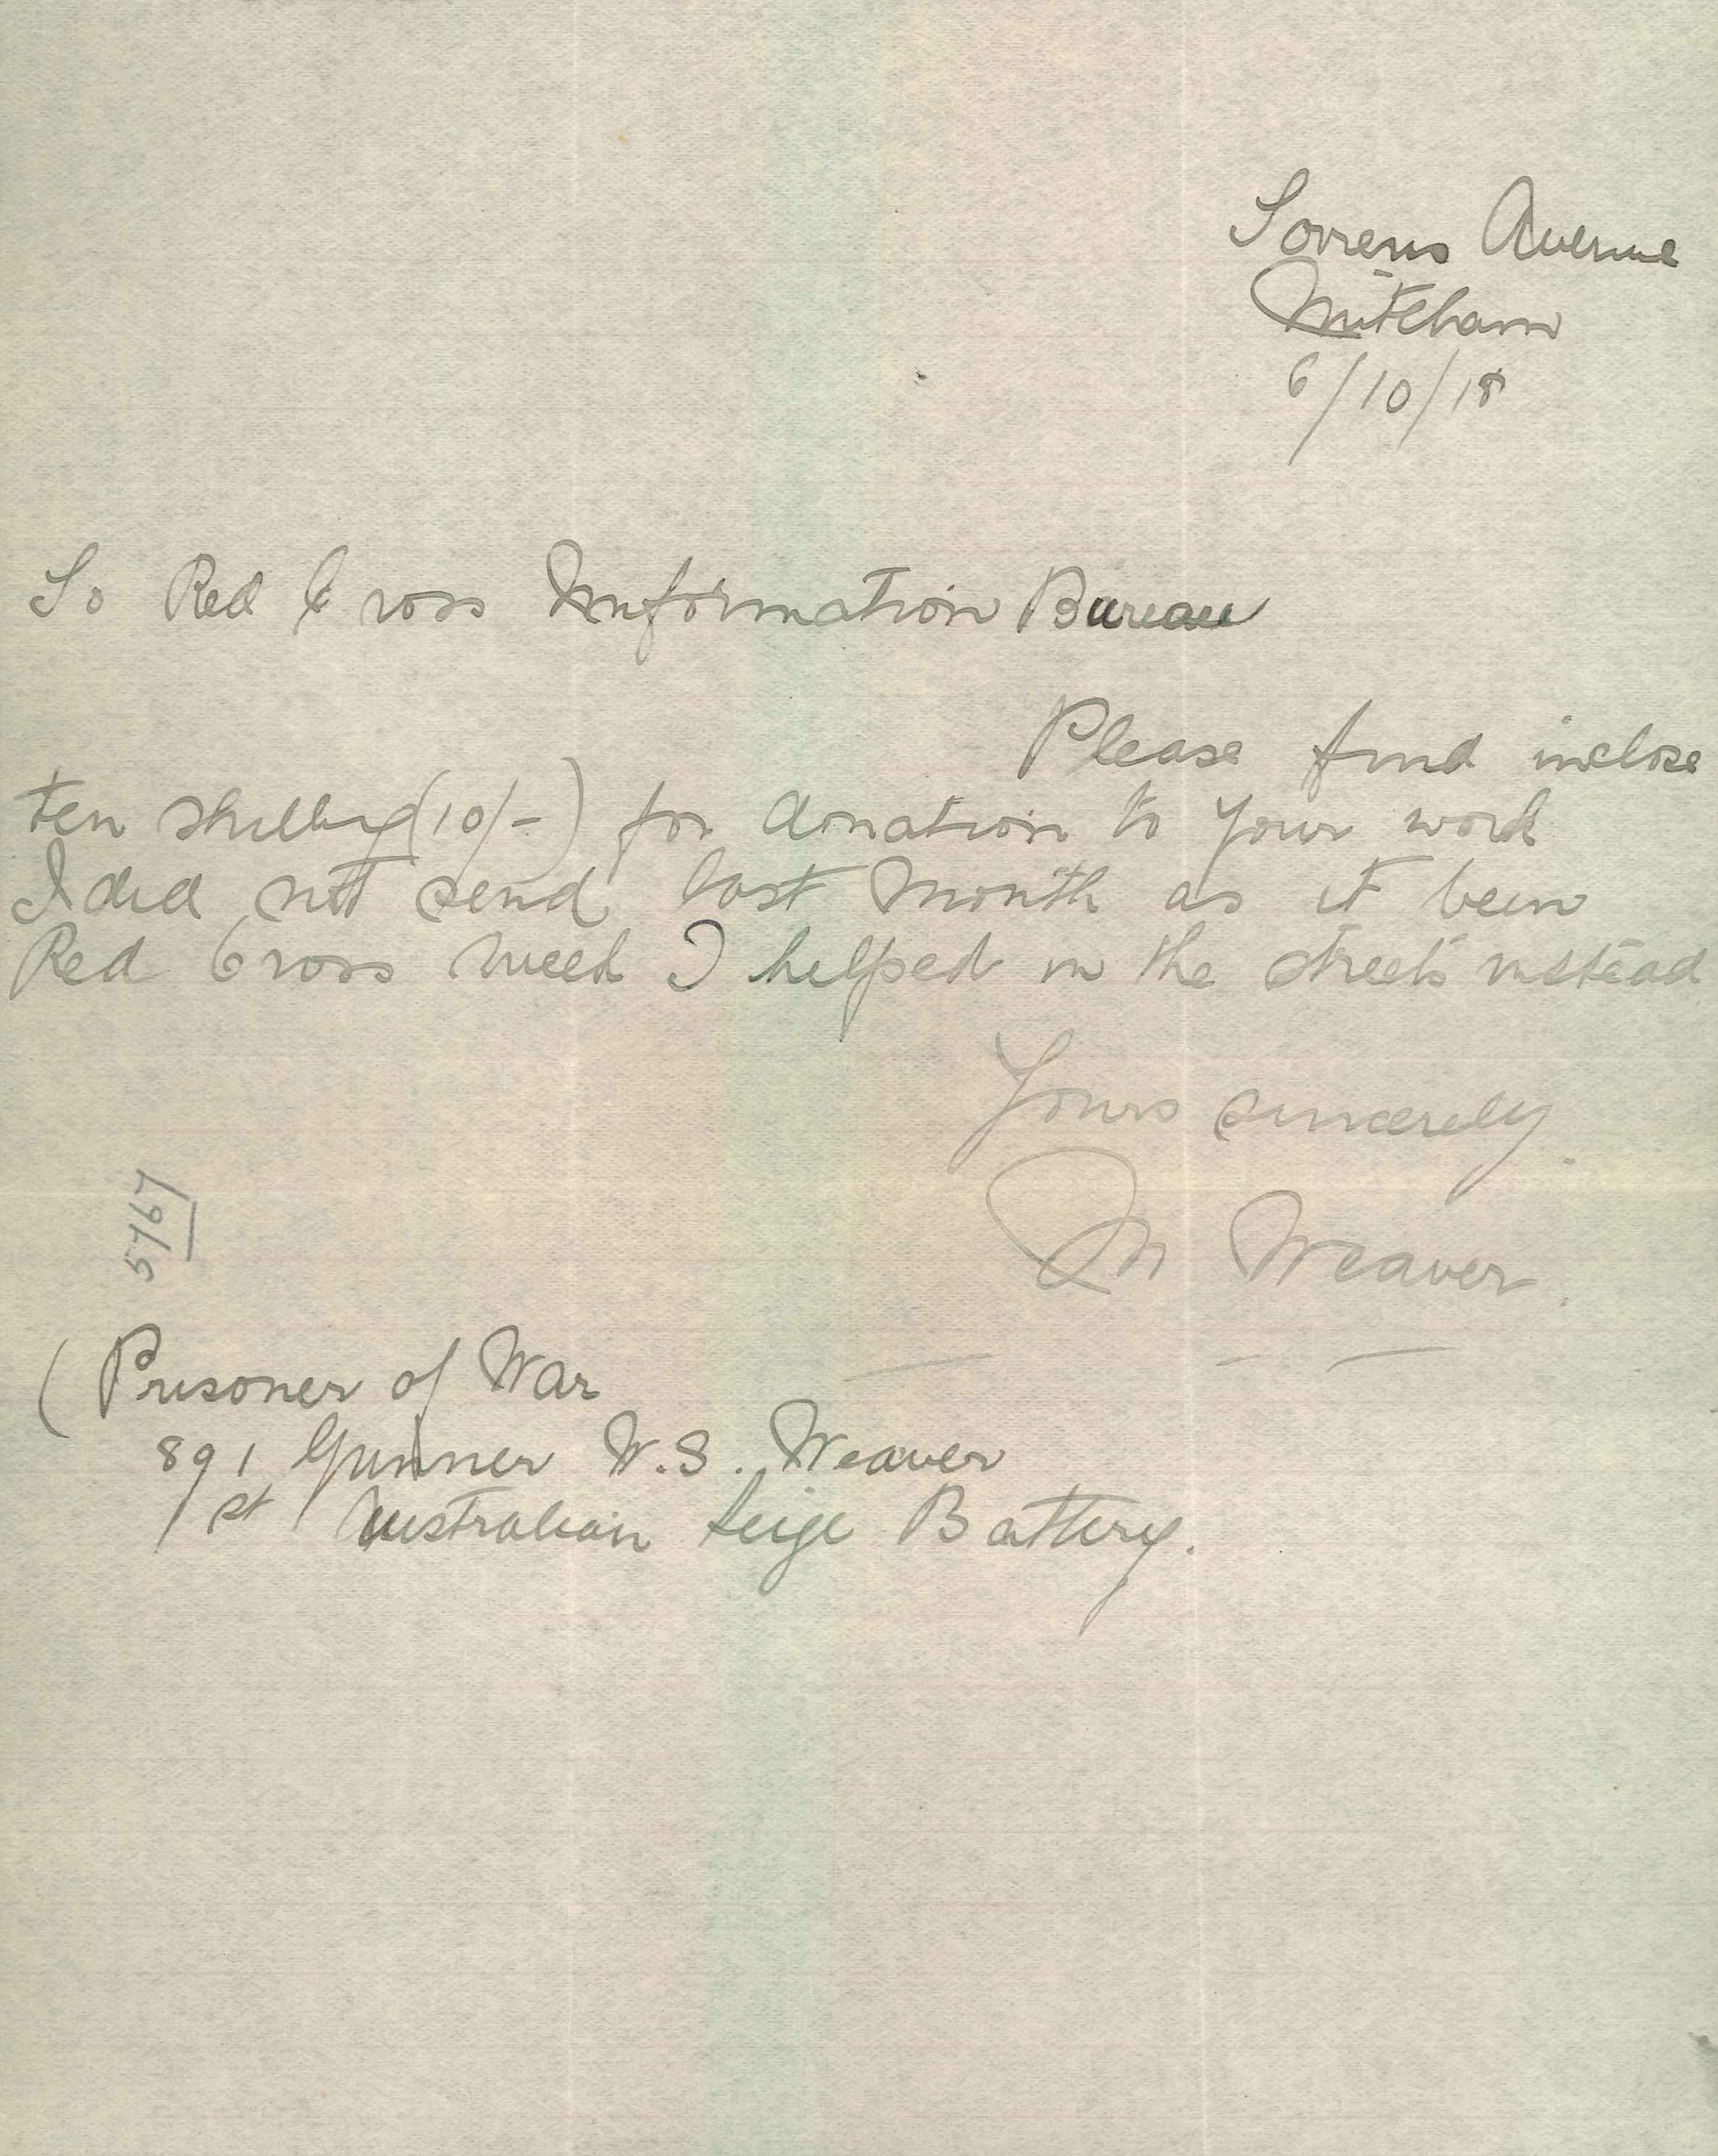 Torrens Avenue
Mitcham
6/10/18
To Red Cross Information Bureau
Please find inclose
ten shilling (10/-) for donation to your work
I did not send last month as it been
Red Cross week I helped in the streets instead
Yours sincerely
M Weaver.
5767
(Prisoner of War
891 Gunner W.S. Weaver
1st Australian Seige Battery.